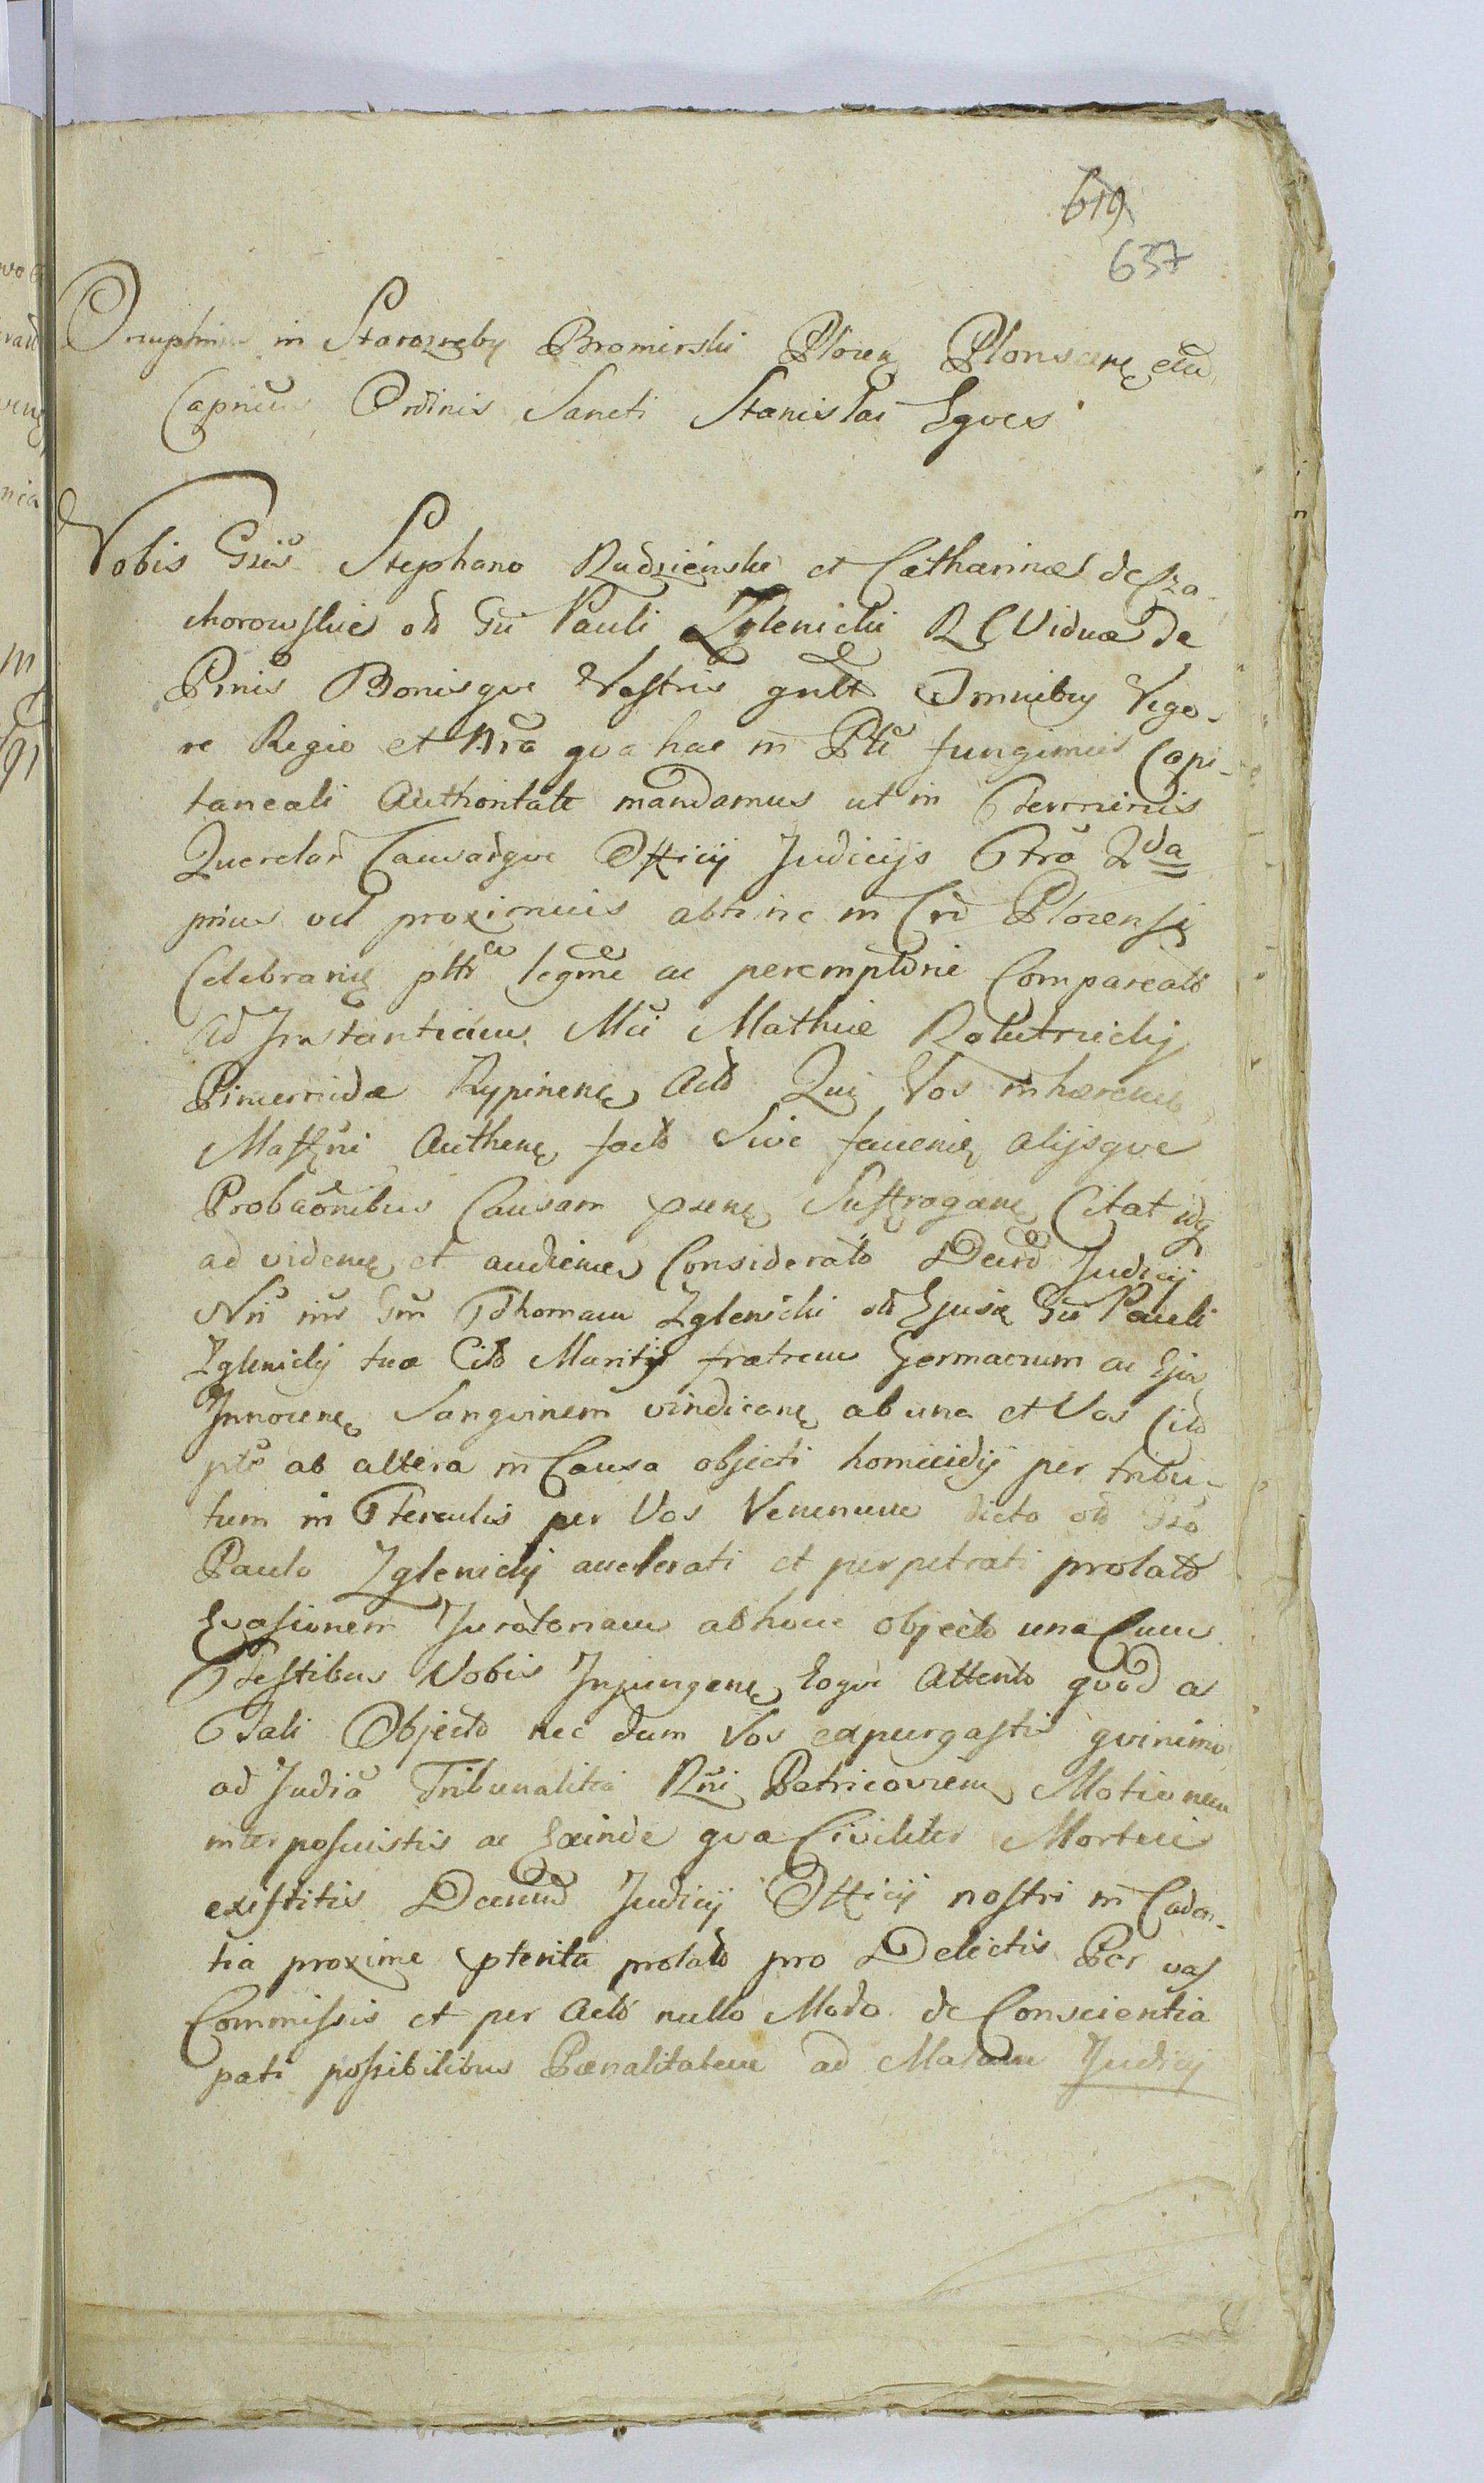 619
637
Onuphrius in Starozreby Bromirski Plocen Plonscens etc
Capneus Ordinis Sancti Stanislai Eques
Vobis Gsis Stephano Rudzieński et Catharinæ de Sza-
chorowskie olb Gii Pauli Zglenicki R C Viduæ De
Psnis Bonisque Vestris gnlt Omnibus Vigo-
re Regio et Nra qua hac in Pte fungimur Capi-
taneali Authoritate mandamus ut in Terminis
Querelar Causarque Officij Judicijs Ptrō 2da
prius vel proximius abhinc in Crō Plocensi
Celebranę pltr legme ac peremptorie Compareatō
Ad Instantiam Mci Mathiæ Rokitnickij
Pincernidæ Rypinenę Actō Qui Vos inhærenę
Maffni Authenę factō Sive favenię alijsque
Probaōnibus Causam psenę Suffraganę Citat idq
ad videnę et audienę Consideratō Decrō Judicij
Nri inr Gm Thomam Zglenicki olb Ejusdę Gii Pauli
Zglenickij tuæ Citō Maritij fratrem Germanum ac Ejus
Innocenę Sangvinem vindicanę ab una et Vos Citō
ptē ab altera in Causa objecti homicidij per tribu-
tum in Ferculis per Vos Venenum dicto olb Gsō
Paulo Zglenickij accelerati et perpetrati prolatō
Evasionem Juratoriam ab hoc objectō una Cum
Testibus Vobis Injungenę Eoque Attentō quod a
Tali Objectō nec dum Vos expurgastis quinimo
ad Judiā Tribunalitia Rni Petricovienę Motionem
interposuistis ac Exinde qua Civiliter Mortui
existitis Decrum Judicij Officij nostri in Caden-
tia proxime pterita prolatō pro Delictis Per vos
Commissis et per Actō nullo Modo de Conscientia
pati possibilibus Pænalitatem ad Malam Judicij